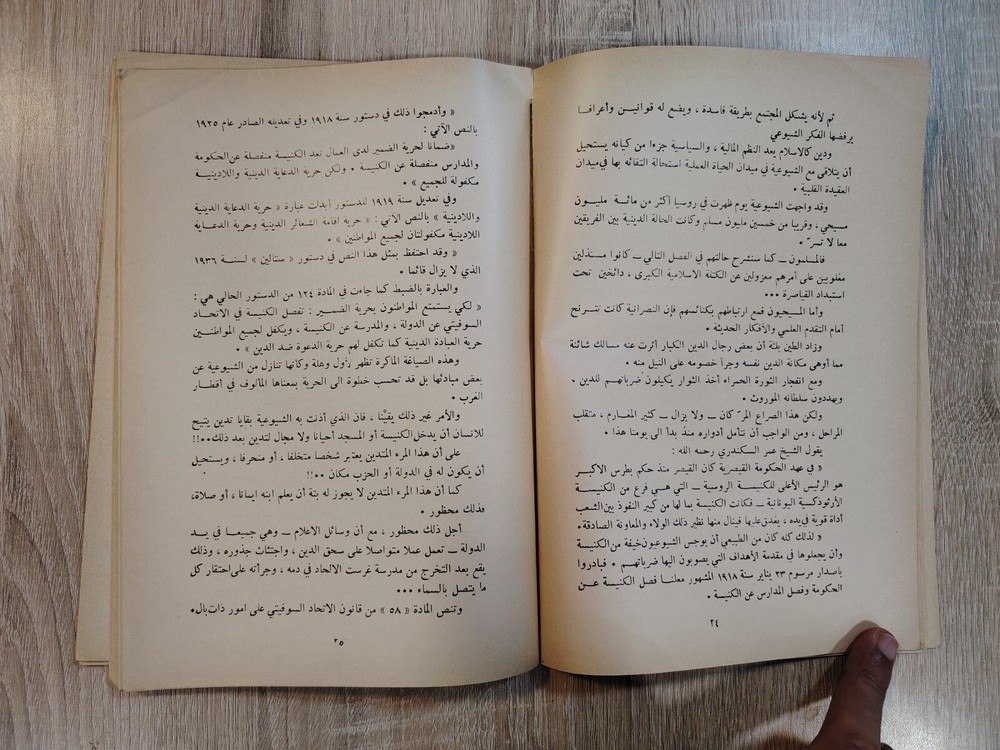 ثم لأنه يشكل المجتمع بطريقة فاسدة ، ويضع له قوانيـن وأعرافا
يرفضها الفكر الشيوعي
ودين كالاسلام يعد النظم المالية ، والسياسية جزءا من كيانه يستحيل
أن يتلاقى مع الشيوعية في ميدان الحياة العملية استحالة التقائه بها في ميدان
العقيدة القلبية .
وقد واجهت الشيوعية يوم ظهرت في روسيا أكثر من مائـة مليـون
مسيحي ، وقريبا من خمسين مليون مسلم وكانت الحالة الدينية بين الفريقين
معا لا تسرّ .
فالمسلمون ــ كما سنشرح حالتهم في الفصل التالي ــ كانوا مستذلين
مغلوبين على أمرهم معزولين عن الكتلة الاسلامية الكبرى ، دائخين تحت
استبداد القياصرة ...
وأما المسيحيون فمع ارتباطهم بكنائسهم فإن النصرانية كانت تترنح
أمام التقدم العلمي والأفكار الحديثة .
وزاد الطين بلة أن بعض رجال الدين الكبار أثرت عنه مسالك شائنة
مما أوهى مكانة الدين نفسه وجرأ خصومه على النيل منه .
ومع انفجار الثورة الحمراء أخذ الثوار يكيلون ضرباتهـم للدين ،
ويهددون سلطانه الموروث .
ولكن هذا الصراع المرّ كان ــ ولا يزال ــ كثير المغـارم ، متقلب
المراحل ، ومن الواجب أن نتأمل أدواره منذ بدأ الى يومنا هذا .
يقول الشيخ عمر السكندري رحمه الله :
« في عهد الحكومة القيصرية كان القيصر منذ حكم بطرس الاكبـر
هو الرئيس الأعلى للكنيسة الروسية ــ التي هـي فرع من الكنيسـة
الأرثوذكسية اليونانية ــ فكانت الكنيسة بما لها من كبير النفوذ بين الشعب
أداة قوية في يده ، يغدق عليها فينال منها نظير ذلك الولاء والمعاونة الصادقة .
« لذلك كله كان من الطبيعي أن يوجس الشيوعيون خيفة من الكنيسة
وأن يجعلوها في مقدمة الأهداف التي يصوبون اليها ضرباتهـم . فبادروا
باصدار مرسوم ٢٣ يناير سنة ١٩١٨ المشهور معلنـا فصل الكنيسة عـن
الحكومة وفصل المدارس عن الكنيسة .
٢٤
« وأدمجوا ذلك في دستور سنة ١٩١٨ وفي تعديله الصادر عام ١٩٢٥
بالنص الآتي :
«ضمانا لحرية الضمير لدى العمال تعد الكنيسة منفصلة عن الحكومة
والمدارس منفصلة عن الكنيسة . ولكن حرية الدعاية الدينية واللادينيـة
مكفولة للجميع » .
وفي تعديل سنة ١٩١٩ للدستور أبدلت عبارة « حرية الدعاية الدينية
واللادينية » بالنص الآتي : « حرية اقامة الشعائر الدينية وحرية الدعـاية
اللادينية مكفولتان لجميع المواطنين » .
« وقد احتفظ بمثل هذا النص في دستور « ستالين » لسنـة ١٩٣٦
الذي لا يزال قائما .
والعبارة بالضبط كما جاءت في المادة ١٢٤ من الدستور الحالي هي :
« لكي يستمتع المواطنون بحرية الضميـر : تفصل الكنيسة في الاتحـاد
السوفيتي عن الدولة ، والمدرسة عن الكنيسة ، ويكفل لجميع المواطنـين
حرية العبادة الدينية كما تكفل لهم حرية الدعوة ضد الدين » .
وهذه الصياغة الماكرة تظهر لأول وهلة وكأنها تنازل من الشيوعية عن
بعض مبادئها بل قد تحسب خطوة الى الحرية بمعناها المألوف في أقطـار
الغرب .
والأمر غير ذلك يقينًا ، فان الذي أذنت به الشيوعية بقايا تدين يتيح
للانسان أن يدخل الكنيسة أو المسجد أحيانا ولا مجال لتدين بعد ذلك..!!
على أن هذا المرء المتدين يعتبر شخصا متخلفا ، أو منحرفا ، ويستحيل
أن يكون له في الدولة أو الحزب مكان ..!!
كما أن هذا المرء المتدين لا يجوز له بتة أن يعلم ابنه ايمانا ، أو صلاة،
فذلك محظور .
أجل ذلك محظور ، مع أن وسائل الاعلام ــ وهي جميعـا في يــد
الدولة ــ تعمل عملا متواصلا على سحق الدين ، واجتثاث جذوره ، وذلك
يقع بعد التخرج من مدرسة غرست الالحاد في دمه ، وجرأته على احتقار كل
ما يتصل بالسماء ...
وتنص المادة « ٥٨ » من قانون الاتحاد السوفيتي على امور ذات بال.
٢٥